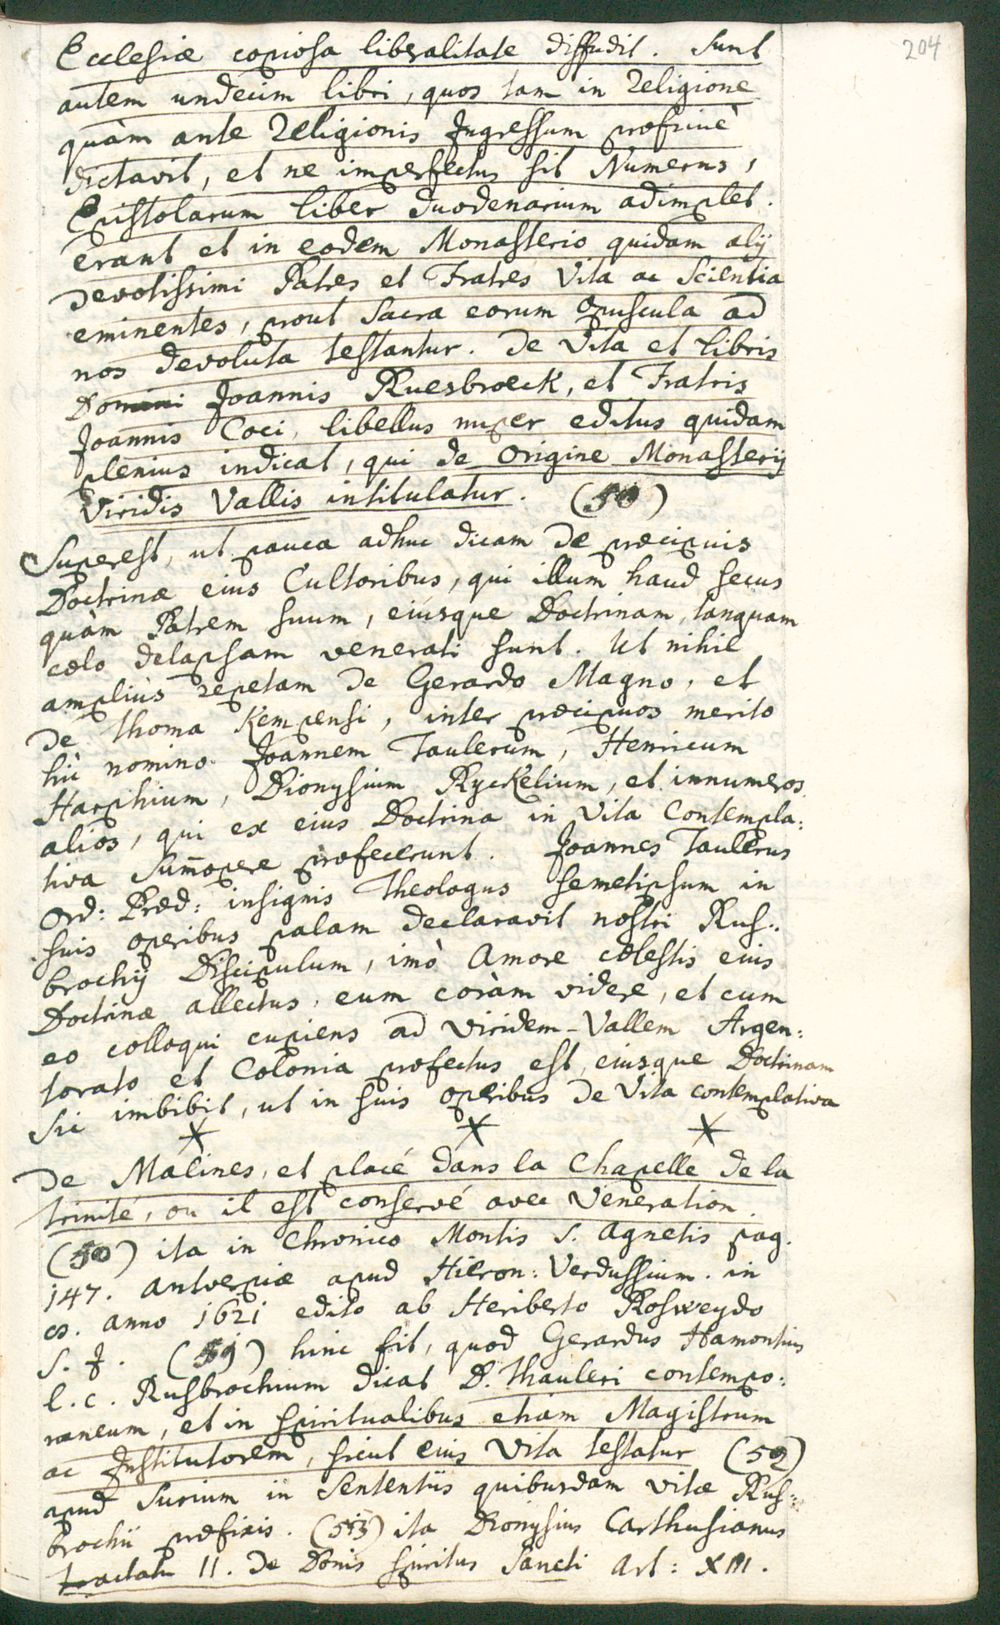 204
Ecclesiæ copiosa liberalitate diffudit. Sunt
autem undecim libri, quos tam in Religione
quàm ante Religionis Ingressum
dictavit, et ne imperfectus sit Numerus,
Epistolarum liber duodenarium adimplet.
erant et in eodem Monasterio quidam alij
devotissimi Patres et Fratres Vita ac Scientia
eminentes, prout Sacra eorum Opuscula ad
nos devoluta testantur. De Vita et libris
Domini Joannis Ruesbroeck, et Fratris
Joannis Coci, libellus nuper editus quidam
plenius indicat, qui de Origine Monasterij
Viridis Vallis intitulatur. (50)
Superest, ut pauca adhuc dicam de præcipuis
Doctrinæ eius Cultoribus, qui illum haud secus
quàm Patrem suum, eiusque Doctrinam, tanquam
cœlo delapsam venerati sunt. Ut nihil
ampliùs repetam de Gerardo Magno, et
de Thoma Kempensi, inter præcipuos merito
hic nomino Joannem Taulerum, Henricum
Harphium, Dionysium Ryckelium, et innumeros
alios, qui ex eius Doctrina in Vita Contempla:
tiva sum̄opere profecerunt. Joannes Taulerus
Ord: Præd: insignis Theologus semetipsum in
suis operibus palam declaravit nostri Rus:
brochij Discipulum, imò Amore cœlestis eius
Doctrinæ allectus, eum coràm videre, et cum
eo colloqui cupiens ad Viridem-Vallem Argen:
torato et Colonia profectus est, eiusque Doctrinam
sic imbibit, ut in suis operibus de Vita contemplativa
* * *
De Malines, et placé dans la Chapelle de la
trinité, ou il est conservé avec Veneration.
(50) ita in Chronico Montis S. Agnetis pag.
147. Antverpiæ apud Hieron: Verdussium. in
anno 1621 edito ab Heriberto Rosweydo
S. J. (51) hinc fit, quod Gerardus Hamontius
l. c. Rusbrochium dicat D. Thauleri contempo:
raneum, et in spiritualibus etiam Magistrum
ac Institutorem, sicut eius Vita testatur (52)
apud Surium in Sententiis quibusdam vitæ Rus:
brochii præfixis. (53) ita Dionysius Carthusianus
tractatu II. de Donis Spiritus Sancti Art: XIII.